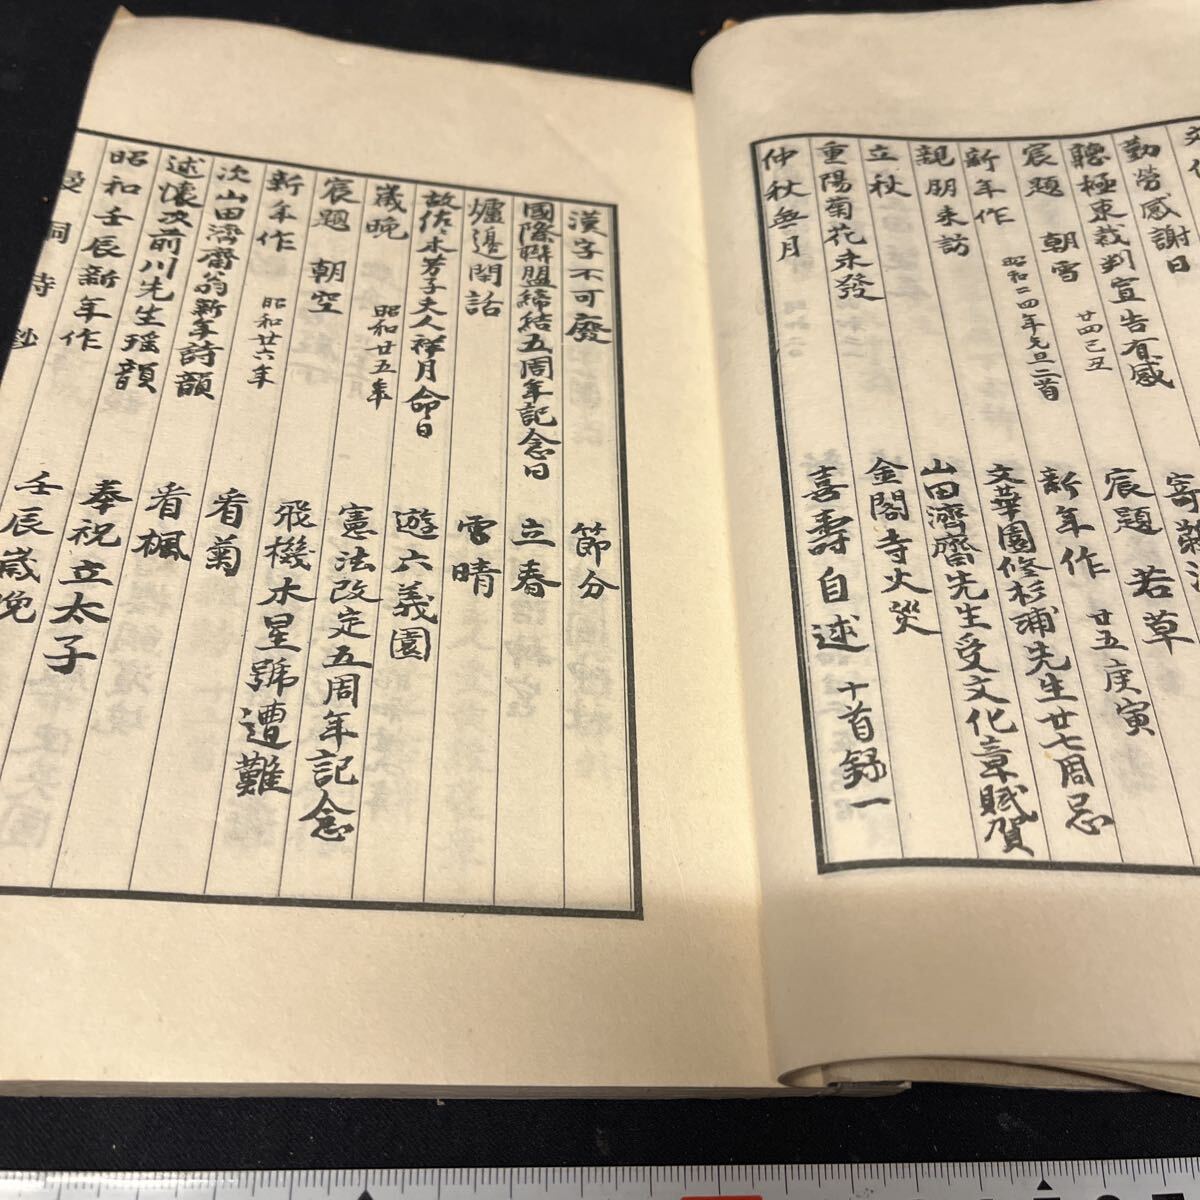 勤勞感謝日
聽極東裁判宣告有感
宸題 朝雪 廿四己丑
宸題 若草
新年作 昭和二四年元旦二首
新年作 廿五庚寅
親朋来訪
文華園修杉浦先生廿七周忌
立秋
山田濟齋先生受文化章賦賀
重陽菊花未發
金閣寺火災
仲秋無月
喜壽自述 十首録一
漢字不可廢
節分
國際聯盟締結五周年記念日
立春
爐邊閑話
雪晴
故佐々木芳子夫人祥月命日
遊六義園
歲晩 昭和廿五年
憲法改定五周年記念
宸題 朝空
飛機木星號遭難
新年作 昭和廿六年
看菊
次山田濟齋翁新年詩韻
看楓
述懷次前川先生瑶韻
奉祝立太子
昭和壬辰新年作
壬辰歲晩